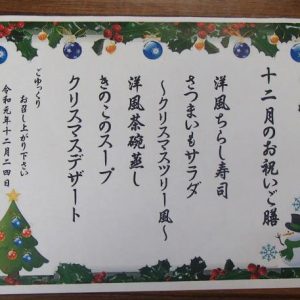 十二月のお祝いご膳
洋風ちらし寿司
さつまいもサラダ
～クリスマスツリー風～
洋風茶碗蒸し
きのこのスープ
クリスマスデザート
ごゆっくり
お召し上がり下さい
令和元年十二月二四日